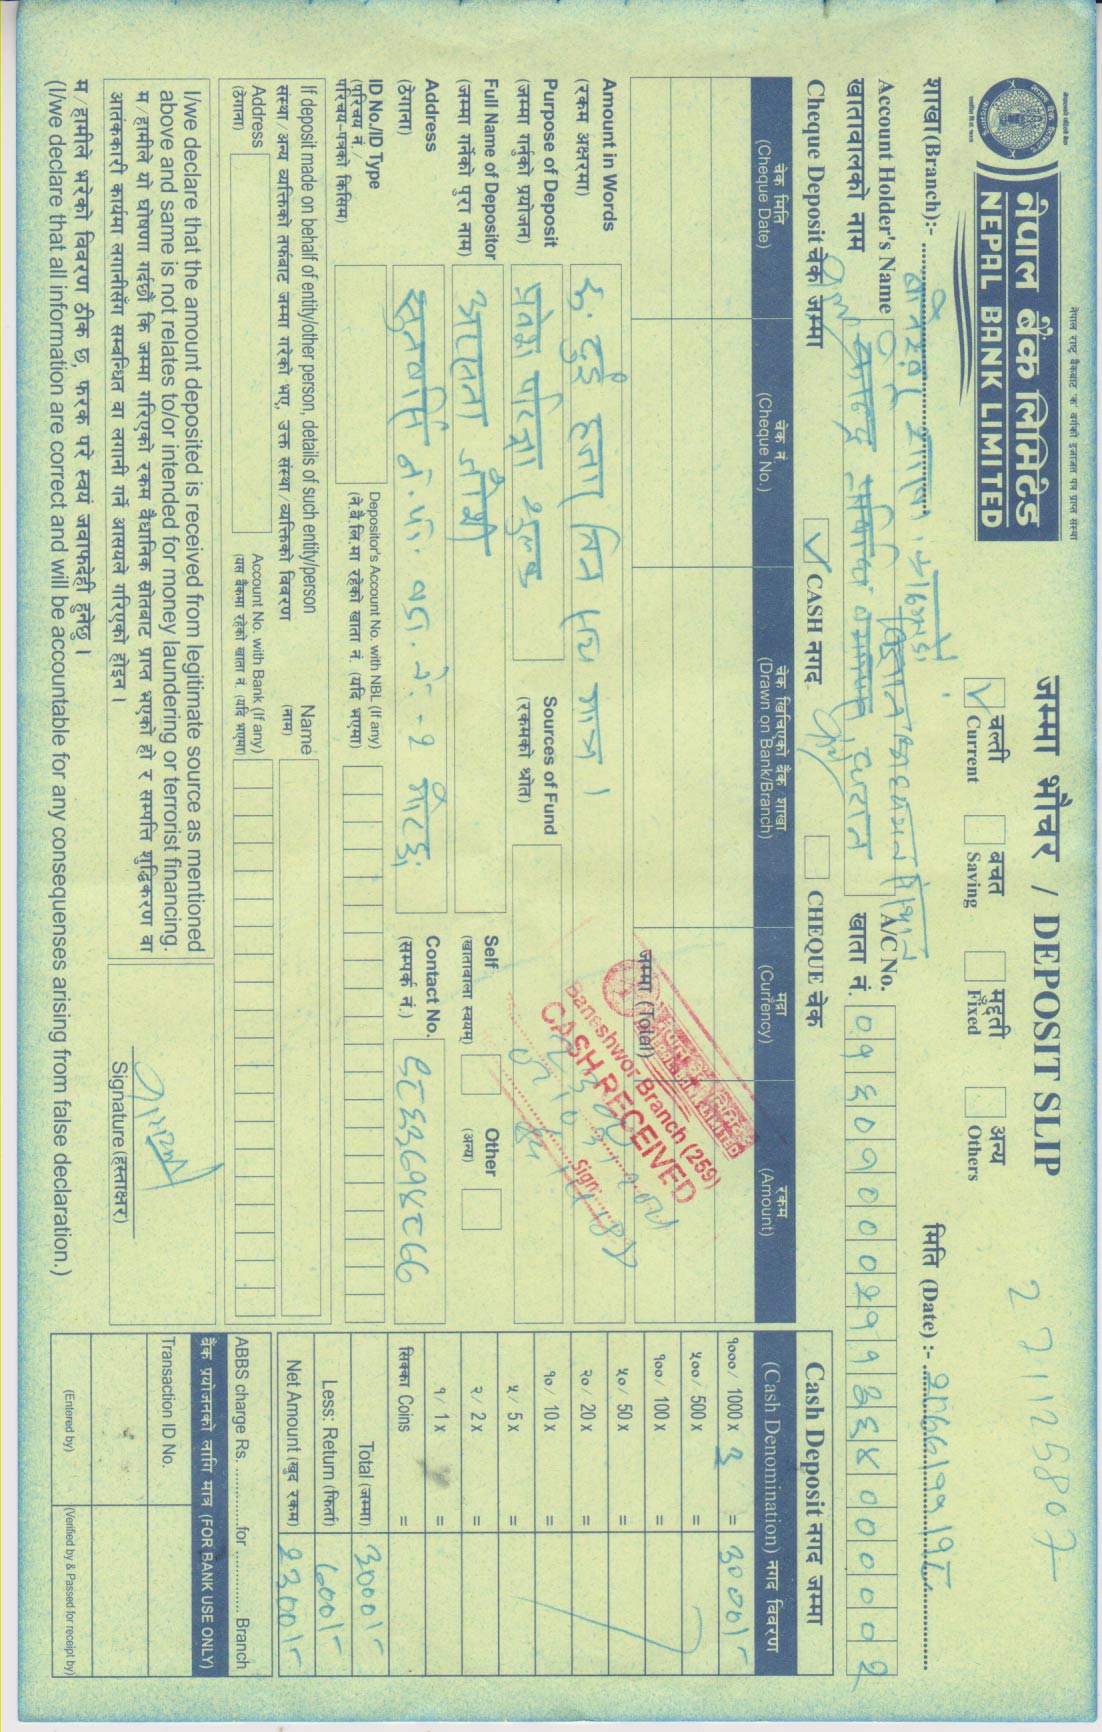 नेपाल राष्ट्र बैंकबाट 'क' वर्गको इजाजत पत्र प्राप्त संस्था
नेपाल बैंक लिमिटेड
NEPAL BANK LIMITED
जम्मा भौचर / DEPOSIT SLIP
चल्ती
Current
बचत
Saving
मुद्दती
Fixed
अन्य
Others
शाखा(Branch):-
मिति (Date) :-
Account Holder's Name
खातावालको नाम
A/C No.
खाता नं.
Cheque Deposit चेक जम्मा
CASH नगद
CHEQUE चेक
चेक मिति
(Cheque Date)
चेक नं.
(Cheque No.)
चेक खिचिएको बैंक शाखा
(Drawn on Bank/Branch)
मुद्रा
(Currency)
रकम
(Amount)
जम्मा (Total)
Baneshwor Branch (259)
CASH RECEIVED
Sign:
Amount in Words
(रकम अक्षरमा)
रु. दुई हजार तिन सय मात्र ।
Purpose of Deposit
(जम्मा गर्नुको प्रयोजन)
प्रवेश परिक्षा शुल्क
Sources of Fund
(रकमको श्रोत)
Full Name of Depositor
(जम्मा गर्नेको पुरा नाम)
Self
(खातावाला स्वयम्)
Other
(अन्य)
Address
(ठेगाना)
Contact No.
(सम्पर्क नं.)
ID No./ID Type
(परिचय नं. /
परिचय-पत्रको किसिम)
Depositor's Account No. with NBL (If any)
(ने.बै.लि.मा रहेको खाता नं. (यदि भएमा)
If deposit made on behalf of entity/other person, details of such entity/person
संस्था/अन्य व्यक्तिको तर्फबाट जम्मा गरेको भए, उक्त संस्था/व्यक्तिको विवरण
Name
(नाम)
Address
(ठेगाना)
Account No. with Bank (If any)
(यस बैंकमा रहेको खाता नं. (यदि भएमा)
I/we declare that the amount deposited is received from legitimate source as mentioned
above and same is not relates to/or intended for money laundering or terrorist financing.
म/हामीले यो घोषणा गर्दछौं कि जम्मा गरिएको रकम वैधानिक स्रोतबाट प्राप्त भएको हो र सम्पत्ति शुद्धिकरण वा
आतंककारी कार्यमा लगानीसँग सम्बन्धित वा लगानी गर्ने आसयले गरिएको होइन ।
Signature (हस्ताक्षर)
म/हामीले भरेको विवरण ठीक छ, फरक परे स्वयं जवाफदेही हुनेछु ।
(I/we declare that all information are correct and will be accountable for any consequenses arising from false declaration.)
Cash Deposit नगद जम्मा
(Cash Denomination) नगद विवरण
१०००/ 1000 x 3 = 3000/-
५००/ 500 x =
१००/ 100 x =
५०/ 50 x =
२०/ 20 x =
१०/ 10 x =
५/ 5 x =
२/ 2 x =
१/ 1 x =
सिक्का Coins =
Total (जम्मा) 3000/-
Less: Return (फिर्ता)
Net Amount (खुद रकम) 2300/-
ABBS charge Rs. ............for ............ Branch
बैंक प्रयोजनको लागि मात्र (FOR BANK USE ONLY)
Transaction ID No.
(Entered by)
(Verified by & Passed for receipt by)